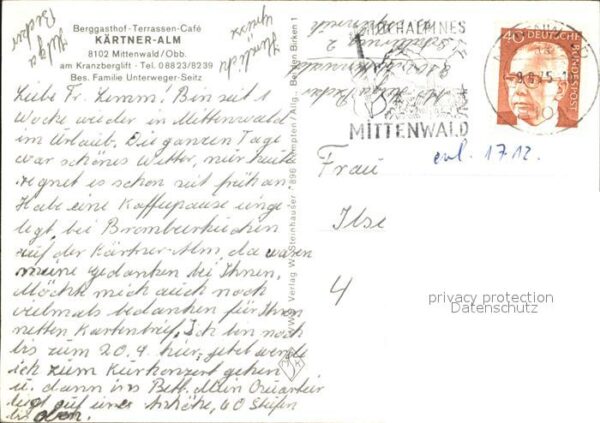 Berggasthof · Terrassen-Café
KÄRTNER-ALM
8102 Mittenwald/Obb.
am Kranzberglift · Tel. 08823/8239
Bes. Familie Unterweger-Seitz
Liebe Fr. Bin seit 1
Woche wieder in Mittenwald
im Urlaub. Die ganzen Tage
war schönes Wetter, nur heute
regnet es schon seit früh an.
Habe eine Kaffeepause einge
legt bei Brombeerkuchen
auf der Kärtner-Alm, da waren
meine Gedanken bei Ihnen.
Möcht mich auch noch
vielmals bedanken für Ihren
netten Kartenbrief. Ich bin noch
bis zum 20.9. hier, jetzt werde
ich zum Kurkonzert gehen
u. dann ins Bett. Mein Quartier
liegt auf einer Anhöhe, 40 Stufen
bis oben.
Herzlichst
Helga
Becker
Verlag W. Steinhauser, 896 Kempten/Allg., Beim Birken 1
HOCHALPINES
MITTENWALD
40 DEUTSCHE BUNDESPOST
-9.9.75
Frau
erl. 17.12.
Ilse
4
privacy protection
Datenschutz